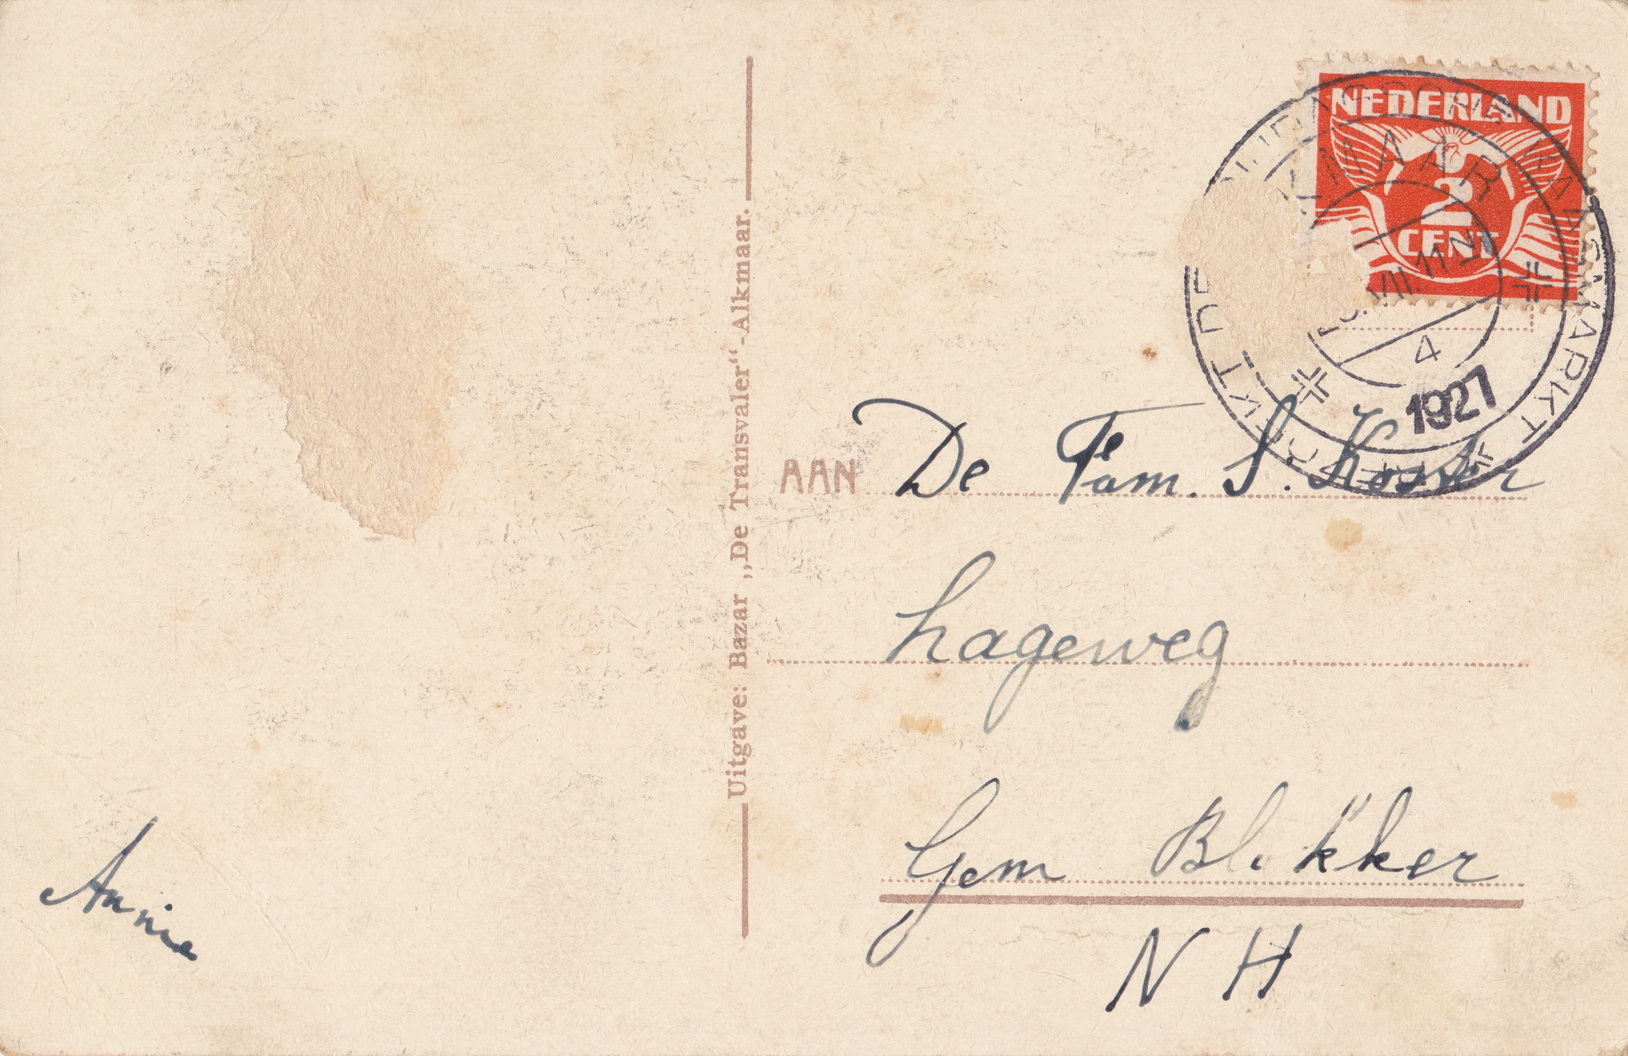 NEDERLAND
2
CENT
VII. 11
4
1927
Uitgave: Bazar „De Transvaler“-Alkmaar.
AAN De Fam. S. Koster
hageweg
Gem Blokker
N H
Annie